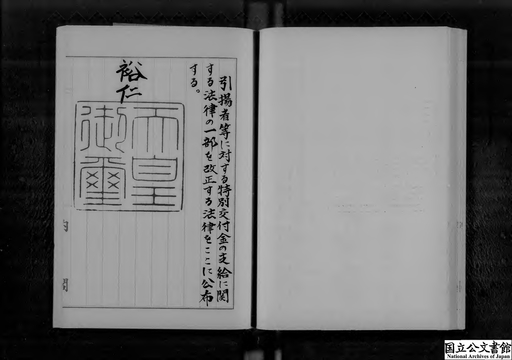 引揚者等に対する特別交付金の支給に関
する法律の一部を改正する法律をここに公布
する。
裕仁
天皇
御璽
国立公文書館
National Archives of Japan